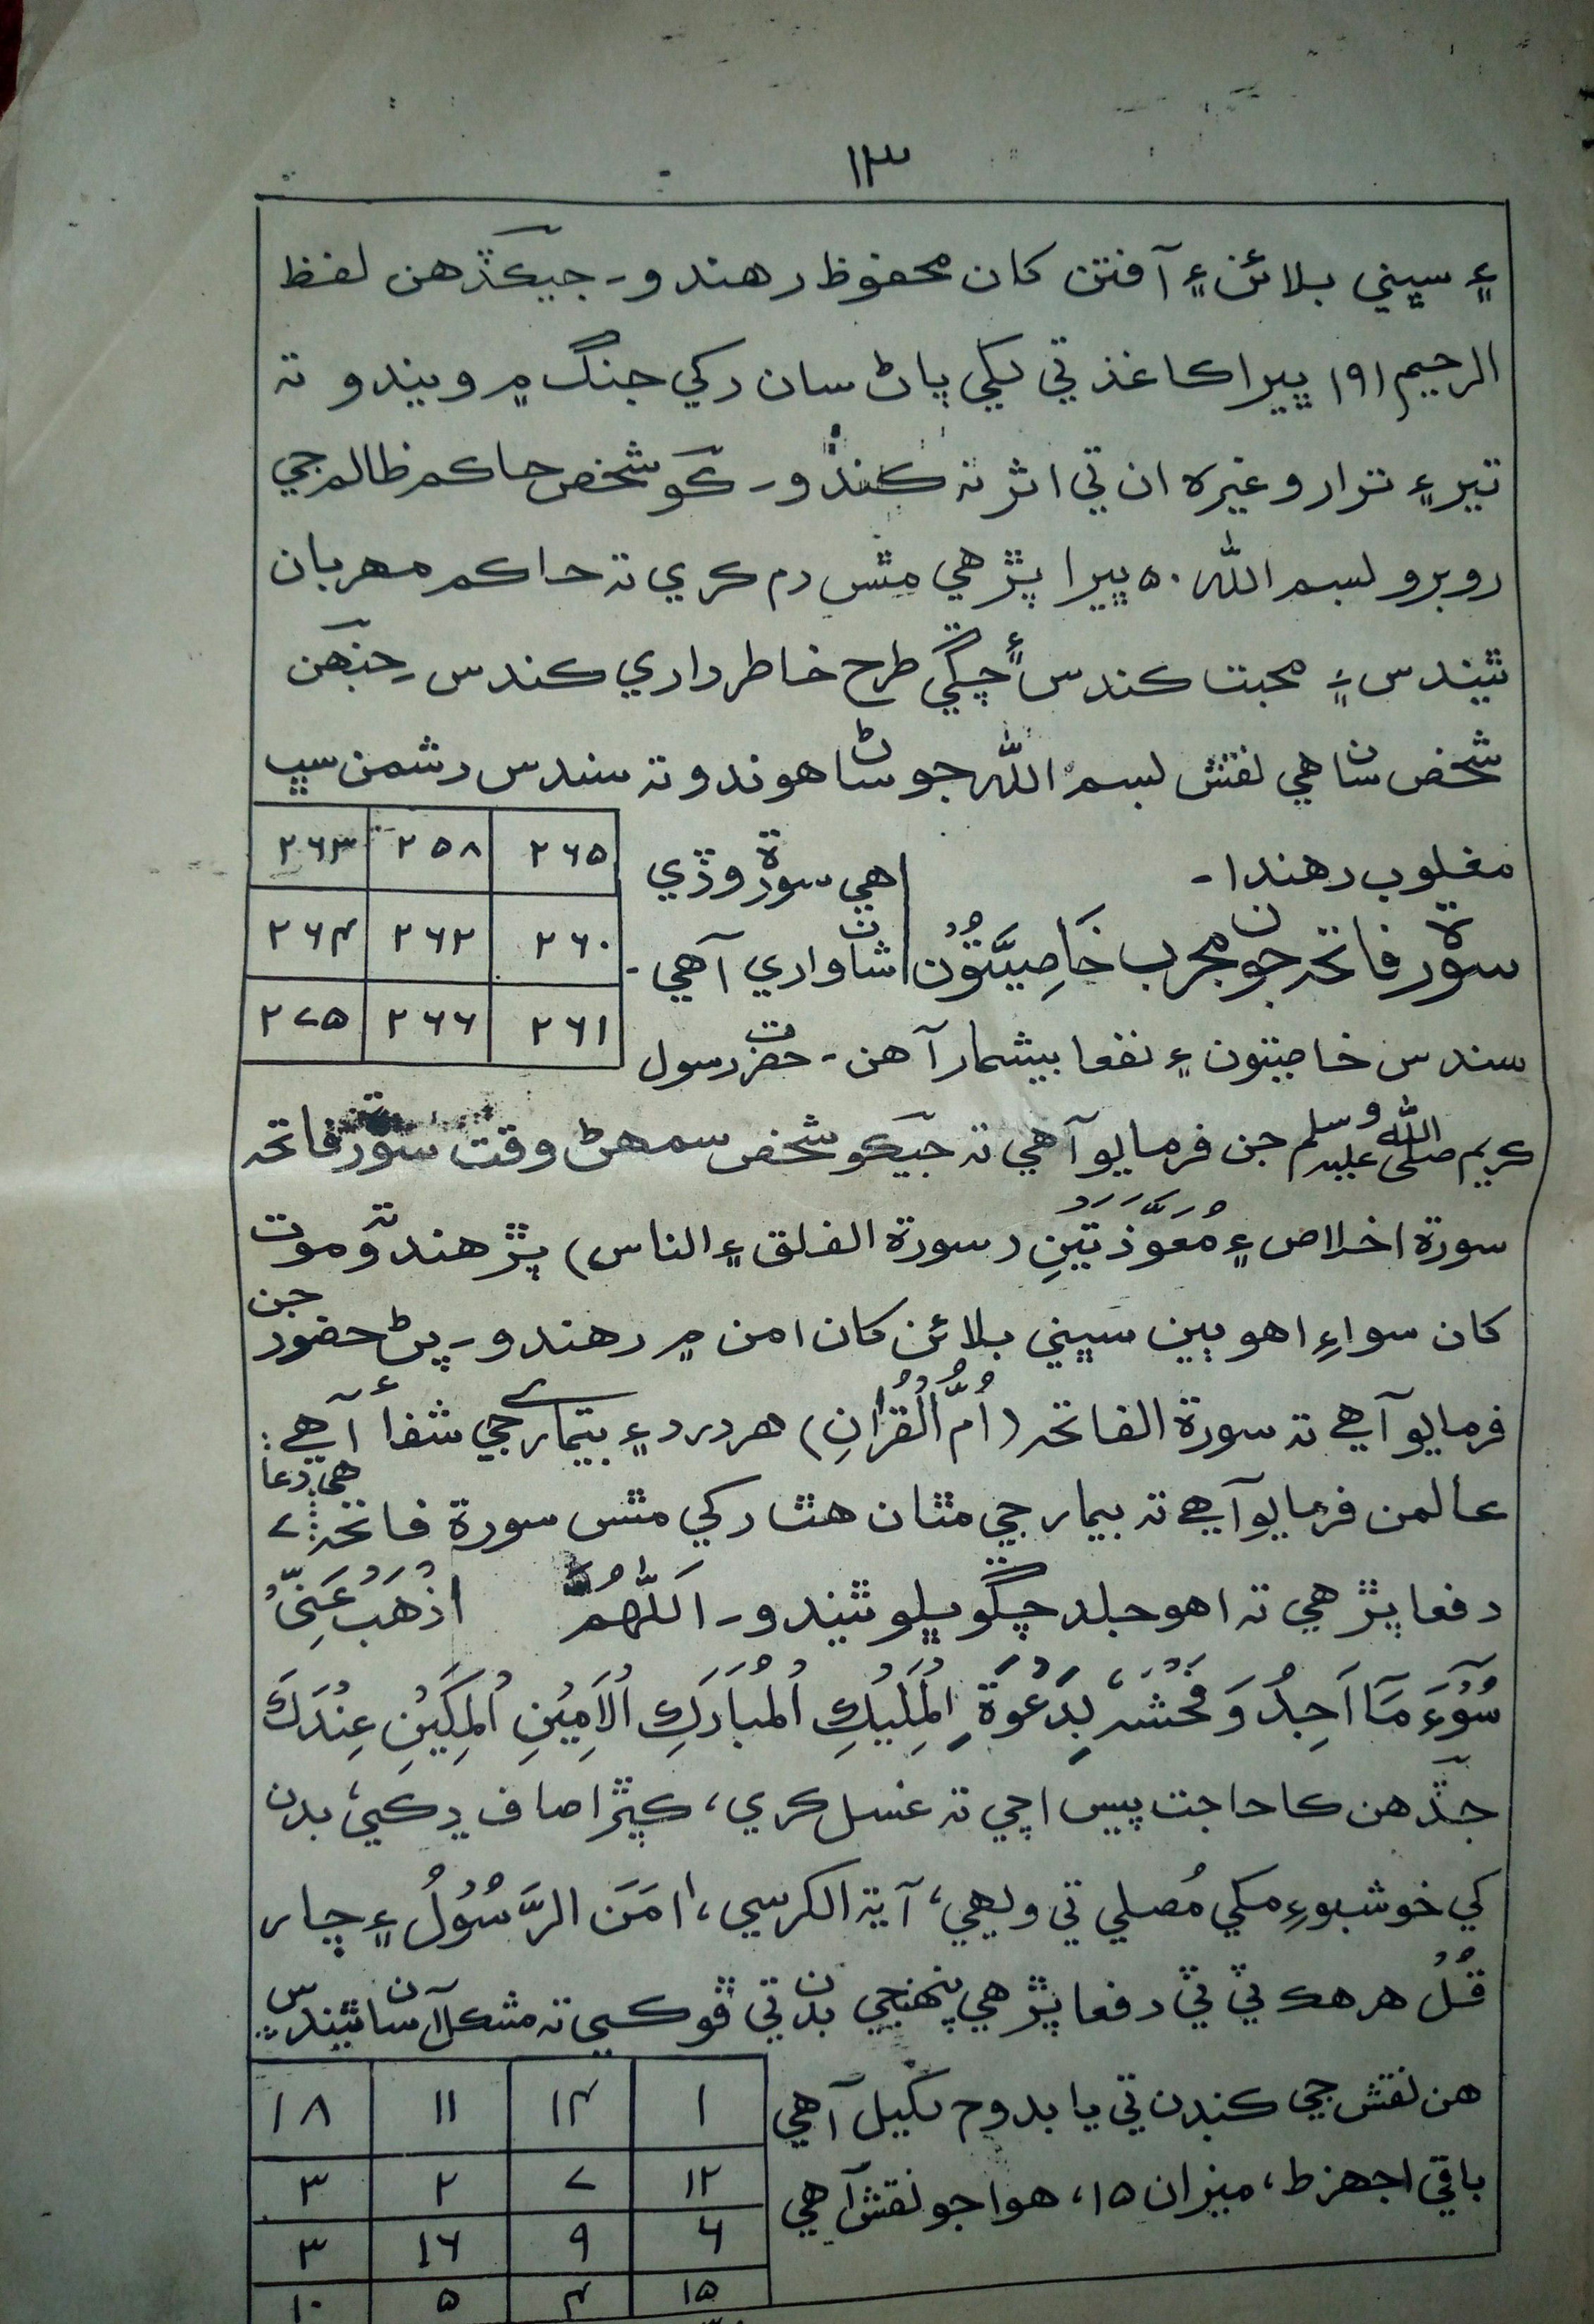 ۱۳
۽ سڀني بلائن ۽ آفتن کان محفوظ رهندو۔ جيڪڏهن لفظ
الرحيم ۱۹۱ ڀيرا ڪاغذ تي لکي پاڻ سان رکي جنگ ۾ ويندو تہ
تير ۽ ترار وغيره ان تي اثر نہ ڪندو۔ ڪو شخص حاڪم ظالم جي
روبرو بسم اللہ ۵۰ ڀيرا پڙهي مٿس دم ڪري تہ حاڪم مهربان
ٿيندس ۽ محبت ڪندس ۽ چڱي طرح خاطرداري ڪندس۔ جنهن
شخص سان هي نقش بسم اللہ جو ساڻ هوندو تہ سندس دشمن سڀ
مغلوب رهندا۔
سورة فاتحہ جون مجرب خَاصِيَّتُوْن
هي سورة وڏي
شان واري آهي۔
۲۶۵ ۲۵۸ ۲۶۳
۲۶۰ ۲۶۲ ۲۶۴
۲۶۱ ۲۶۶ ۲۷۵
سندس خاصيتون ۽ نفعا بيشمار آهن۔ حضرت رسول
ڪريم صلی اللہ علیہ وسلم جن فرمايو آهي تہ جيڪو شخص سمهڻ وقت سورة فاتحہ
سورة اخلاص ۽ مُعَوَّذَتَيْنِ (سورة الفلق ۽ الناس) پڙهندو تہ موت
کان سواءِ اهو ٻين سڀني بلائن کان امن ۾ رهندو۔ پڻ حضور جن
فرمايو آهے تہ سورة الفاتحہ (اُمُّ الْقُرْانِ) هر درد ۽ بيماري جي شفا آهے:
عالمن فرمايو آهے تہ بيمار جي مٿان هٿ رکي مٿس سورة فاتحہ هي دعا ۷
دفعا پڙهي تہ اهو جلد چڱو ڀلو ٿيندو۔ اَللّٰهُمَّ اذْهَبْ عَنِّیْ
سُوْٓءَ مَآ اَجِدُ وَ فَحْشَہٗ بِدَعْوَةِ الْمَلِيْكِ الْمُبَارَكِ الْاَمِيْنِ الْمَكِيْنِ عِنْدَكَ
جڏهن ڪا حاجت پيس اچي تہ غسل ڪري، ڪپڙا صاف ڍڪي، بدن
کي خوشبوءِ مکي مُصلي تي ويهي، آية الڪرسي، اٰمَنَ الرَّسُوْلُ ۽ چار
قُلْ هر هڪ ٽي ٽي دفعا پڙهي پنهنجي بدن تي ڦوڪي تہ مشڪل آسان ٿيندس
هن نقش جي ڪنڊن تي يا بدوح لکيل آهي
باقي اجهزط، ميزان ۱۵، هوا جو نقش آهي
۱ ۱۴ ۱۱ ۱۸
۱۲ ۷ ۲ ۳
۶ ۹ ۱۶ ۳
۱۵ ۴ ۵ ۱۰